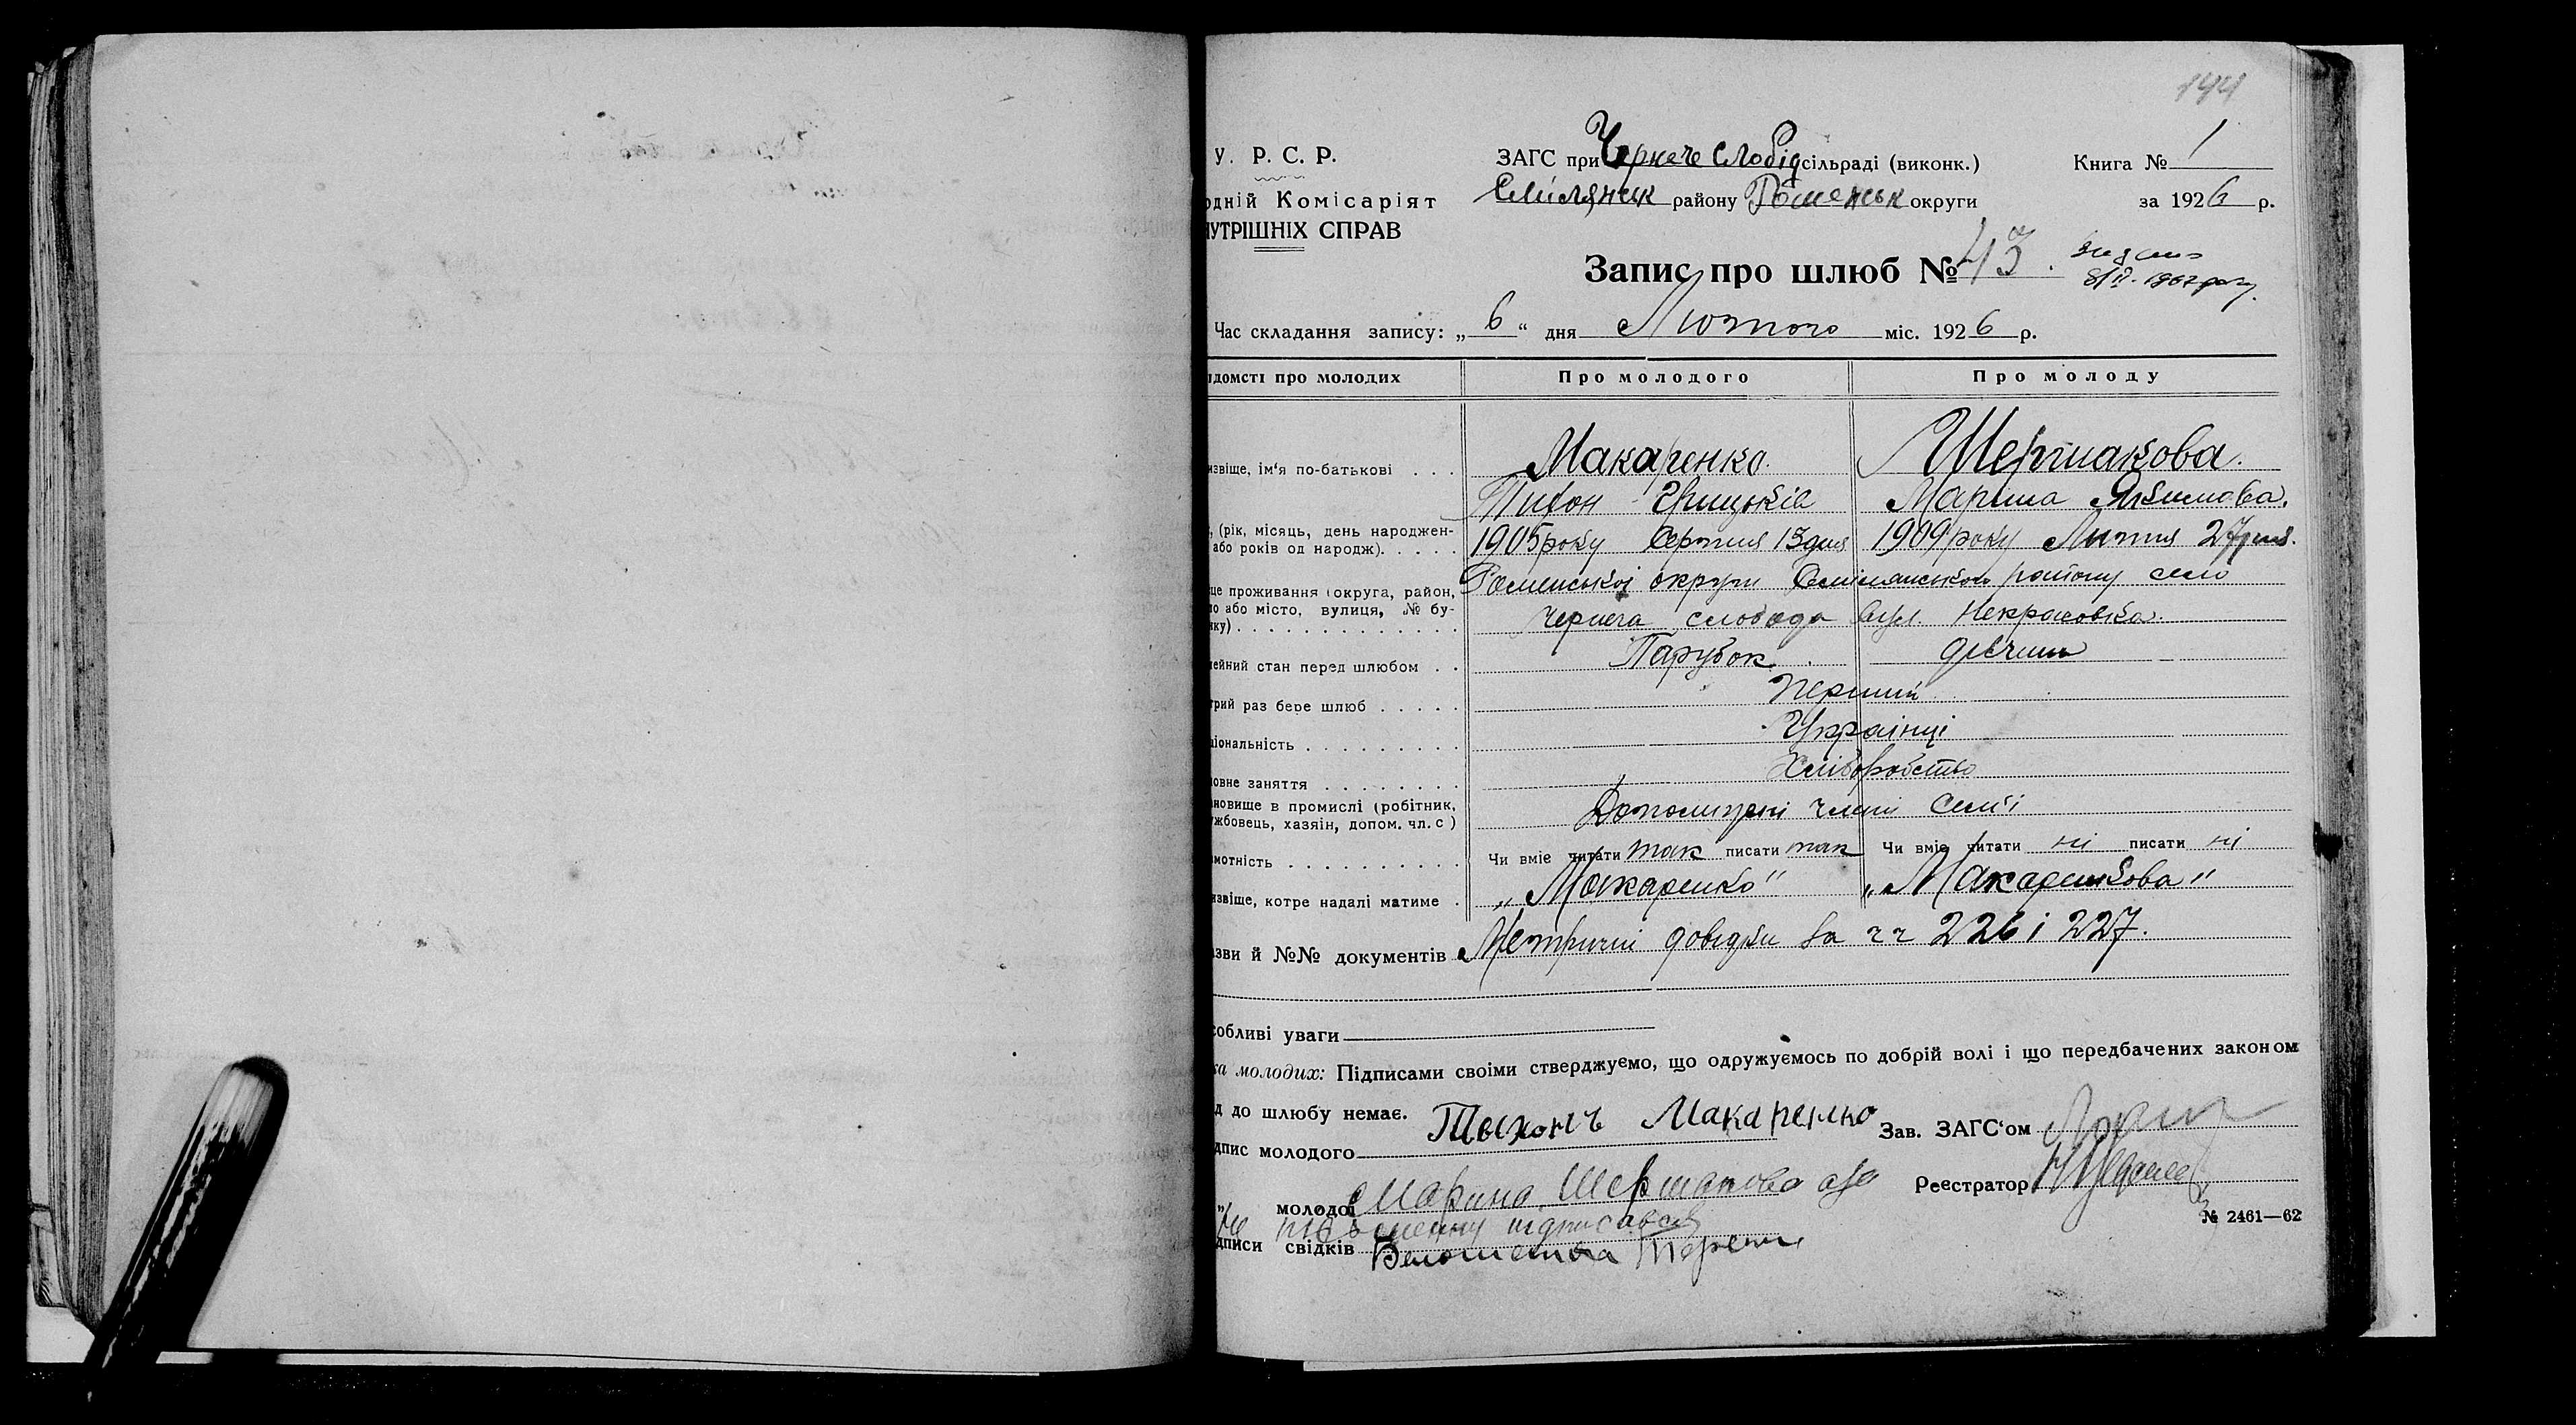 144
У. Р. С. Р.
ЗАГС при Чернече Слобід сільраді (виконк.)
Книга № 1
одній Комісаріят
Смілянськ району Роменськ округи
за 1926 р.
НУТРІШНІХ СПРАВ
Запис про шлюб № 43.
видано
1967 року
Час складання запису: „ 6 “ дня Лютого міс. 1926 р.
ідомсті про молодих
Про молодого
Про молоду
ізвіще, ім'я по-батькові . . .
Макаренко.
Шершакова.
Тихон Грицьків
Марина Якимова.
, (рік, місяць, день народжен-
або років од народж). . . . .
1905 року Серпня 13 дня
1909 року Липня 27 дня.
це проживання (округа, район,
ло або місто, вулиця, № бу-
нку) . . . . . . . . . . . . .
Роменської округи Смілянського району село
Чернеча слобода вул. Некрасовка.
мейний стан перед шлюбом . .
Парубок
дівчина
трий раз бере шлюб . . . . .
Перший
ціональність . . . . . . . . .
Українці
овне заняття . . . . . . . .
Хліборобство
ановище в промислі (робітник,
ужбовець, хазяін, допом. чл. с )
Допоміжні члени Сем'ї
мотність . . . . . . . . . .
Чи вміє читати так писати так
Чи вміє читати ні писати ні
ізвіще, котре надалі матиме .
„Макаренко"
„Макаренкова"
азви й №№ документів Метричні довідки за чч 226 і 227.
собливі уваги
ка молодих: Підписами своїми стверджуємо, що одружуємось по добрій волі і що передбачених законом
д до шлюбу немає.
дпис молодого Тыхонъ Макаренко
Зав. ЗАГС‘ом
„ молодої Марина Шершакова а за
Реєстратор
не письменну підписався
№ 2461—62
дписи свідків